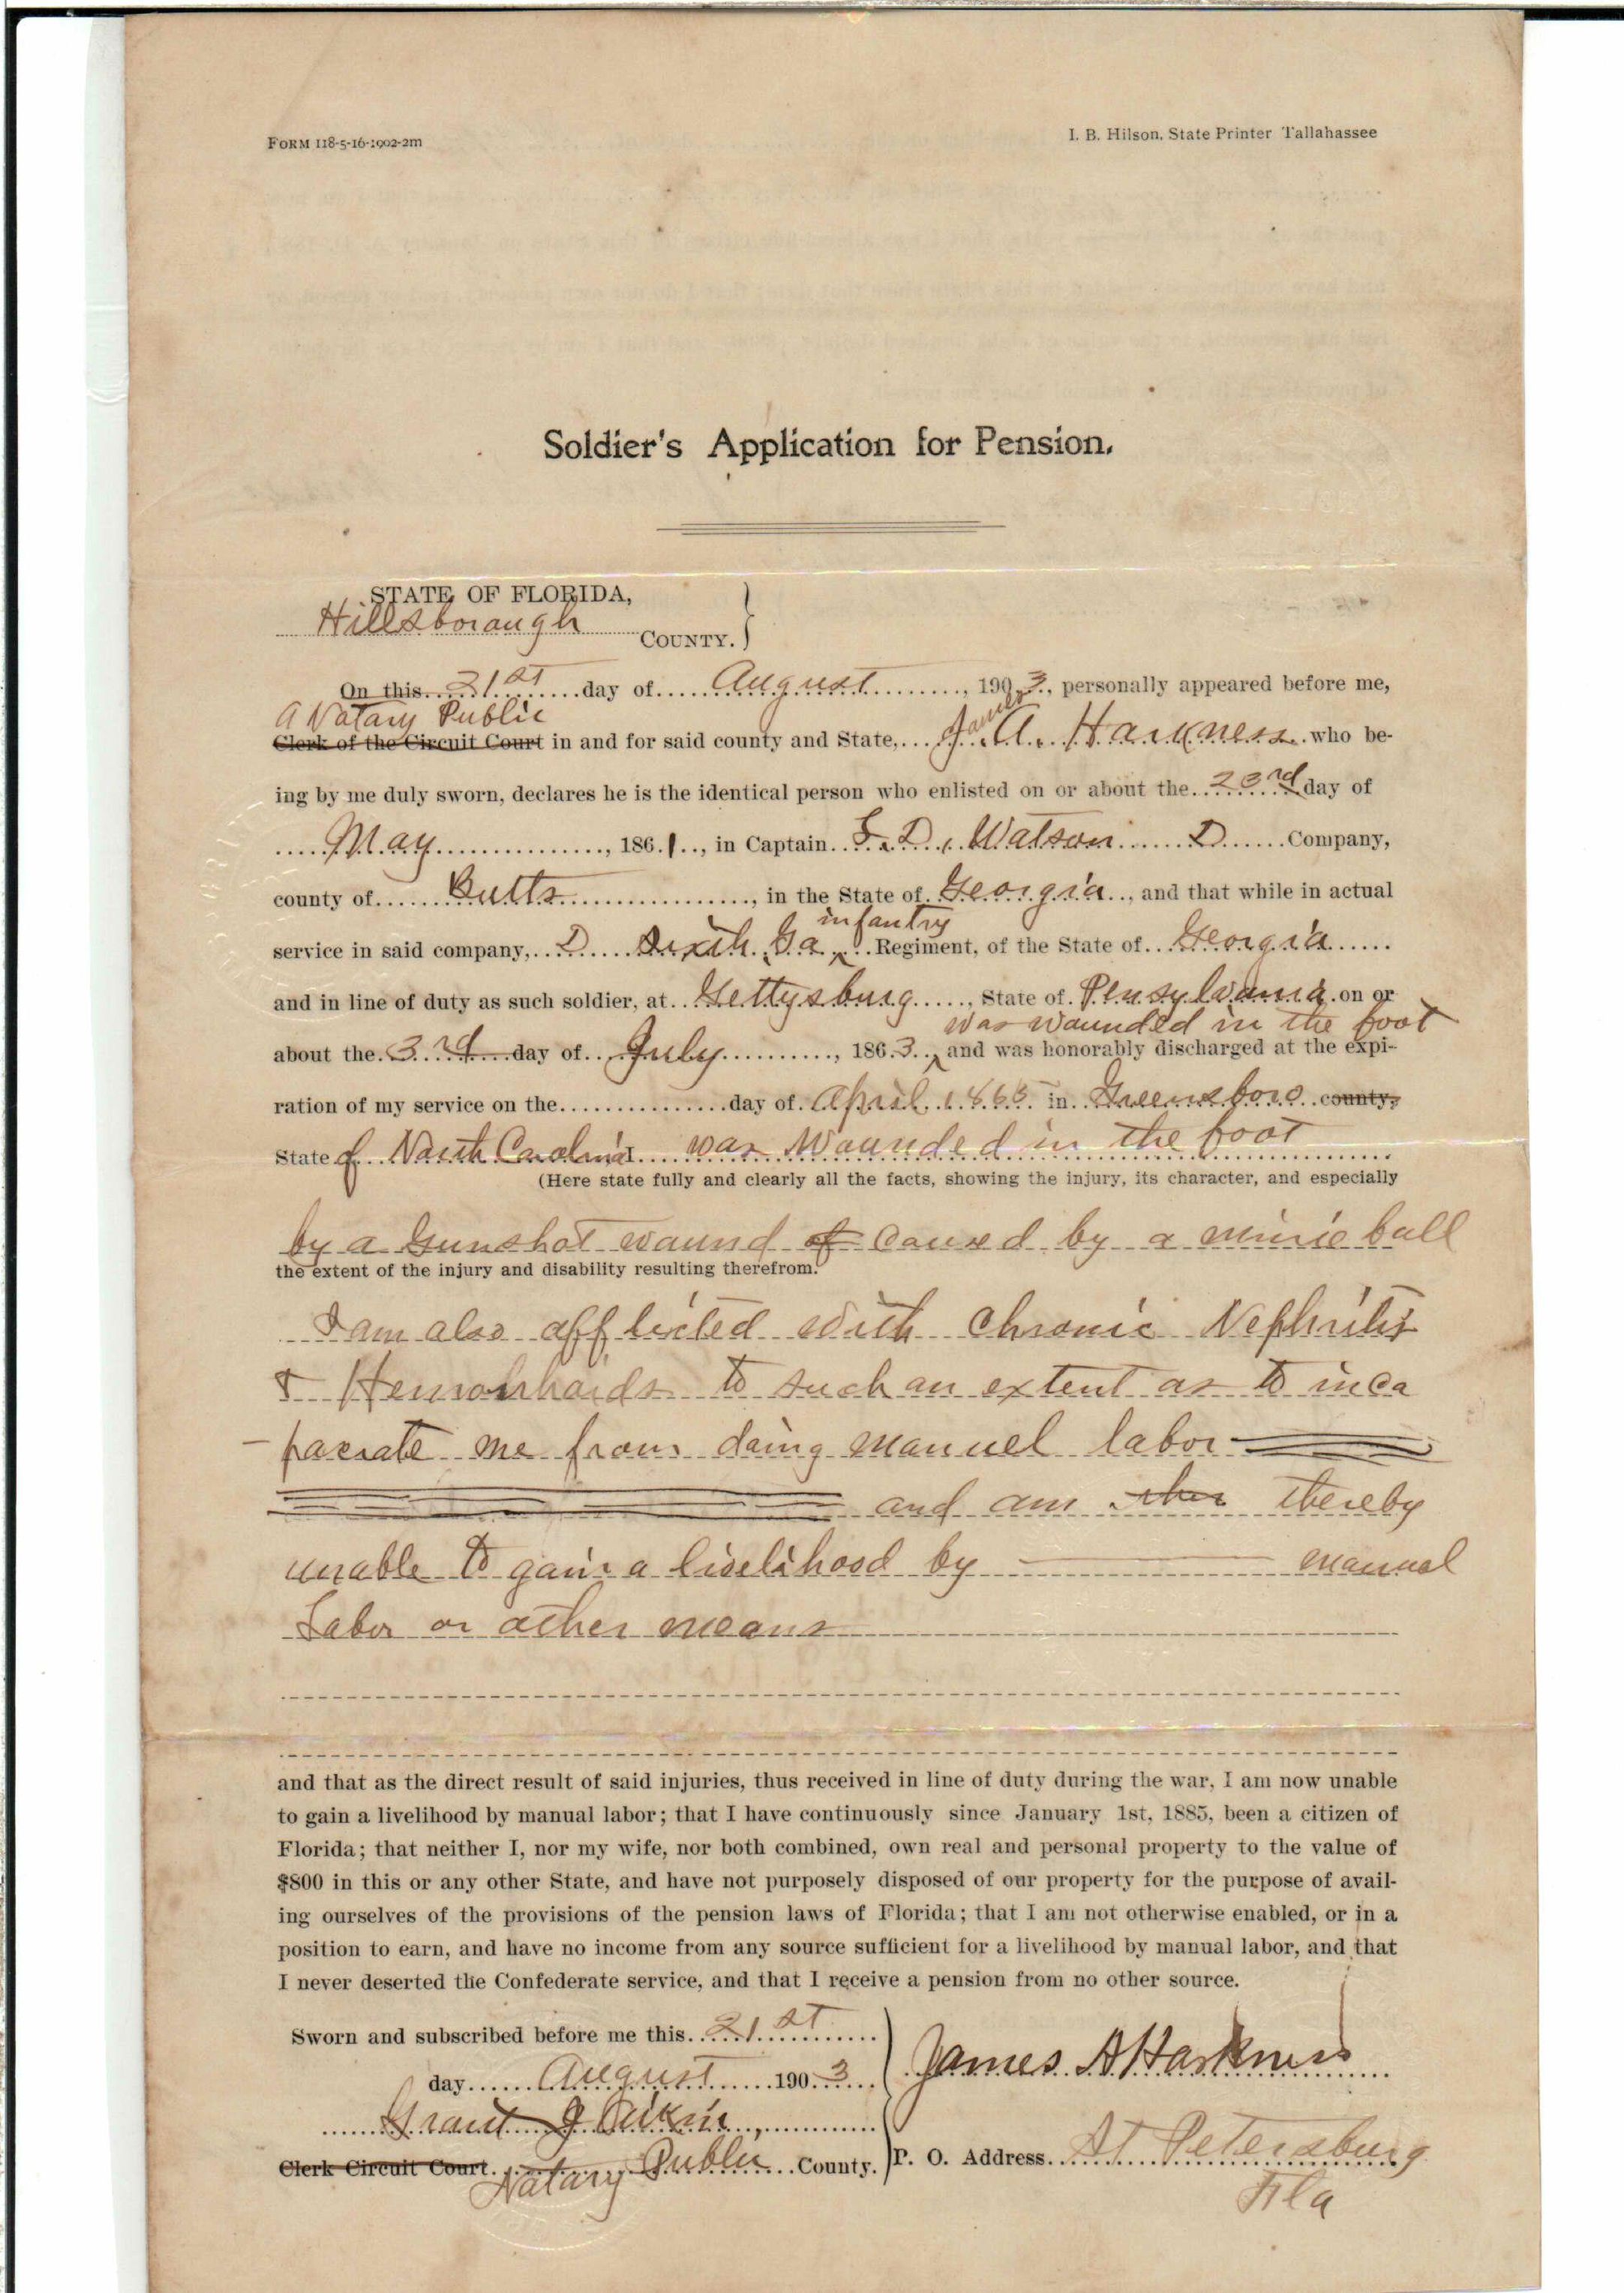 FORM 118-5-16-1902-2m
I. B. Hilson, State Printer Tallahassee
Soldier's Application for Pension.
STATE OF FLORIDA,
Hillsborough COUNTY.
On this 21st day of August, 1903, personally appeared before me,
A Notary Public James
Clerk of the Circuit Court in and for said county and State, J. A. Harkness who be-
ing by me duly sworn, declares he is the identical person who enlisted on or about the 23rd day of
May, 1861, in Captain D. Watson D Company,
county of Butts, in the State of Georgia, and that while in actual
infantry
service in said company, D Sixth Ga Regiment, of the State of Georgia
and in line of duty as such soldier, at Gettysburg, State of Pensylvania on or
was wounded in the foot
about the 3rd day of July, 1863, and was honorably discharged at the expi-
ration of my service on the day of April 1865 in Greensboro county,
State of North Carolina I was wounded in the foot
(Here state fully and clearly all the facts, showing the injury, its character, and especially
by a Gunshot wound of caused by a minie ball
the extent of the injury and disability resulting therefrom.
I am also afflicted with Chronic Nephritis
& Hemorrhoids to such an extent as to inca
-paciate me from doing manuel labor
and am thereby
unable to gain a livelihood by manual
Labor or other means
and that as the direct result of said injuries, thus received in line of duty during the war, I am now unable
to gain a livelihood by manual labor; that I have continuously since January 1st, 1885, been a citizen of
Florida; that neither I, nor my wife, nor both combined, own real and personal property to the value of
$800 in this or any other State, and have not purposely disposed of our property for the purpose of avail-
ing ourselves of the provisions of the pension laws of Florida; that I am not otherwise enabled, or in a
position to earn, and have no income from any source sufficient for a livelihood by manual labor, and that
I never deserted the Confederate service, and that I receive a pension from no other source.
Sworn and subscribed before me this 21st
day August 1903
James A Harkness
Grant J Aikin,
Clerk Circuit Court Notary Public County.
P. O. Address St Petersburg
Fla